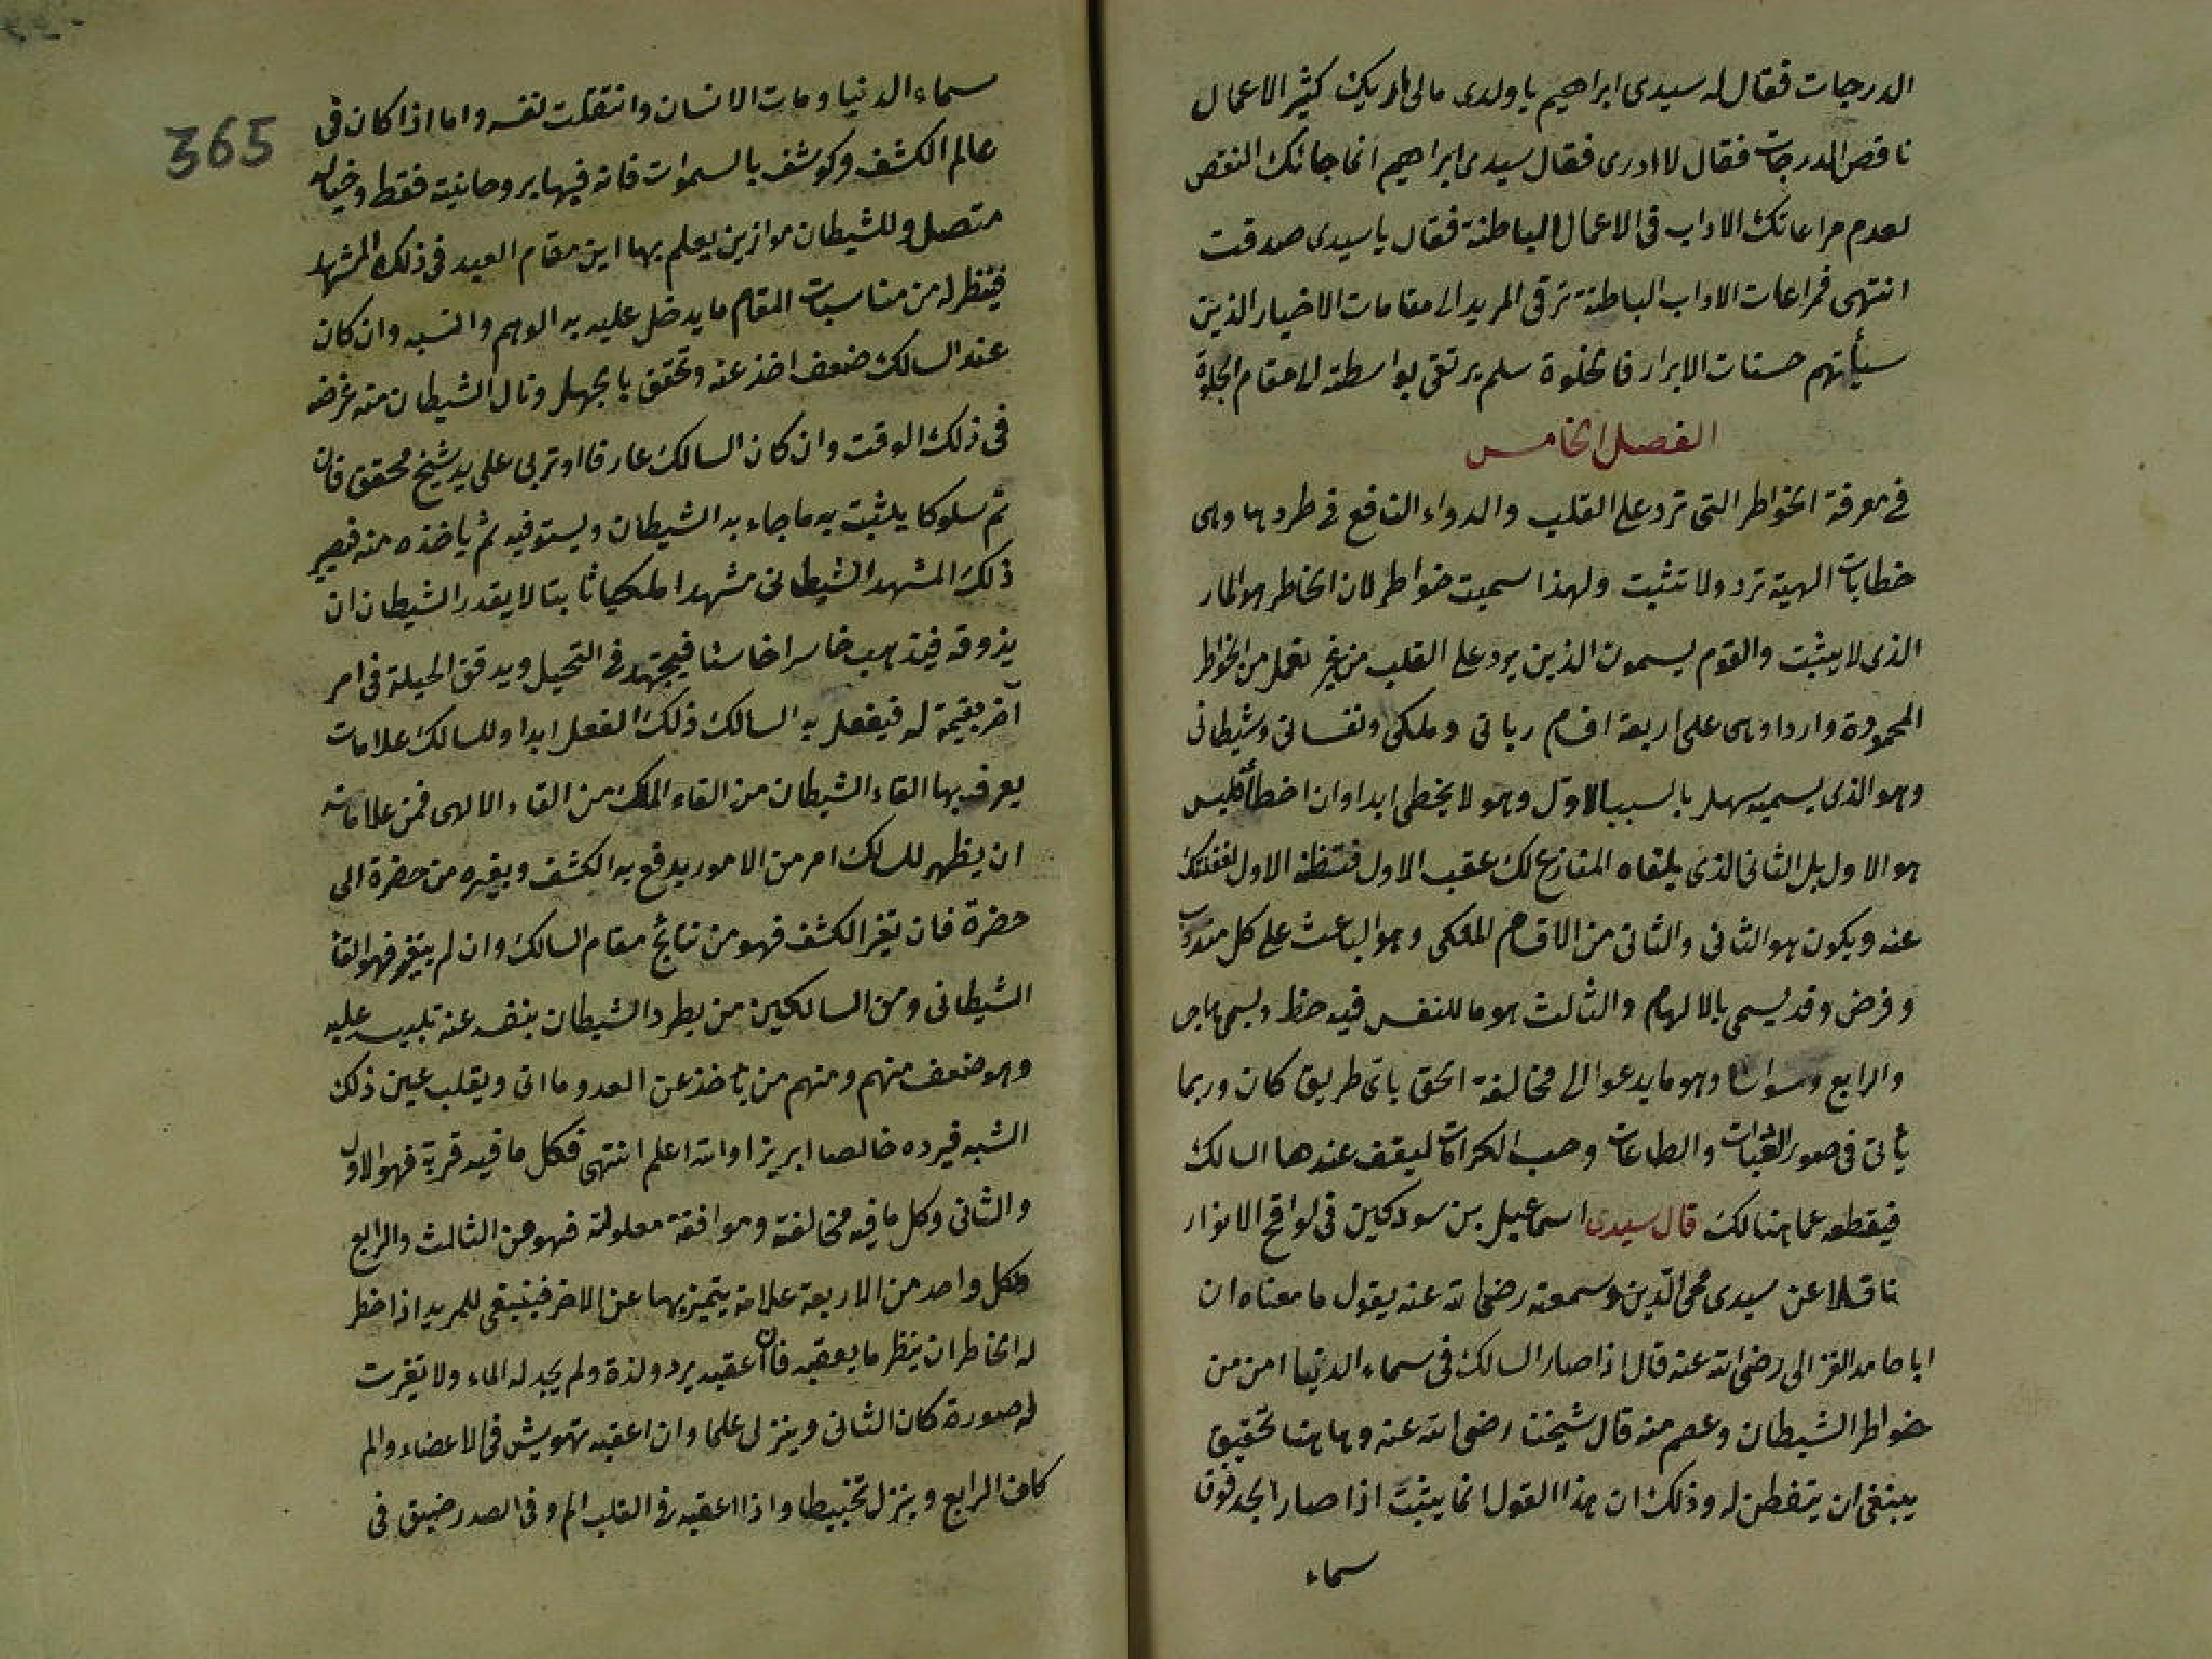 الدرجات فقال له سيدى ابراهيم ياولدى مالى اريك كثير الاعمال
ناقص الدرجات فقال لا ادرى فقال سيدى ابراهيم انما جائك النقص
لعدم مراعاتك الاداب فى الاعمال الباطنة فقال يا سيدى صدقت
انتهى فمراعات الاداب الباطنة ترقى المريد الى مقامات الاخيار الذين
سيأتهم حسنات الابرار فالخلوة سلم يرتقى بواسطته الى مقام الجلوة
الفصل الخامس
فى معرفة الخواطر التى ترد على القلب والدواء النافع فى طردها وهى
خطابات الهية ترد ولا تثبت ولهذا سميت خواطر لان الخاطر هو المار
الذى لا يثبت والقوم يسمون الذين يرد على القلب من غير تعمل من الخواطر
المحمودة واردا وهى على اربعة اقسام ربانى وملكى ونفسانى وشيطانى
وهو الذى يسميه سهل بالسبب الاول وهو لا يخطى ابدا وان اخطأ فليس
هو الاول بل الثانى الذى يلقاه المنازع لك عقب الاول فتظنه الاول لغفلتك
عنه ويكون هو الثانى والثانى من الاقسام الملكى وهو الباعث على كل مندوب
وفرض وقد يسمى بالالهام والثالث هو ما للنفس فيه حظ ويسمى هاجسا
والرابع وسواسا وهو ما يدعوا الى مخالفة الحق باى طريق كان وربما
يأتى فى صور القربات والطاعات وحب الكرامات ليقف عندها السالك
فيقطعه عما هنالك قال سيدى اسماعيل بن سودكين فى لواقح الانوار
ناقلا عن سيدى محى الدين وسمعته رضى الله عنه يقول ما معناه ان
ابا حامد الغزالى رضى الله عنه قال اذا صار السالك فى سماء الدنيا امن من
خواطر الشيطان وعصم منه قال شيخنا رضى الله عنه وهاهنا تحقيق
ينبغى ان يتفطن له وذلك ان هذا القول انما يثبت اذا صار الجسد فوق
سماء
365
سماء الدنيا ومات الانسان وانتقلت نفسه واما اذا كان فى
عالم الكشف وكوشف بالسموات فانه فيها بروحانيته فقط وخياله
متصل وللشيطان موازين يعلم بها اين مقام العبد فى ذلك المشهد
فيظهر له من مناسبات المقام ما يدخل عليه به الوهم والشبه وان كان
عند السالك ضعف اخذ عنه وتحقق بالجهل ونال الشيطان منه غرضه
فى ذلك الوقت وان كان السالك عارفا او تربى على يد شيخ محقق فان
ثم سلوكا يثبت به ما جاء به الشيطان ويستوفيه ثم يأخذه منه فيصير
ذلك المشهد الشيطانى مشهدا ملكيا ثابتا لا يقدر الشيطان ان
يذوقه فيذهب خاسرا خاسئا فيجتهد فى التحيل ويدقق الحيلة فى امر
آخر يقيمه له فيفعل به السالك ذلك الفعل ابدا وللسالك علامات
يعرف بها القاء الشيطان من القاء الملك من القاء الالهى فمن علاماته
ان يظهر للسالك امر من الامور يدفع به الكشف ويغيره من حضرة الى
حضرة فان تغير الكشف فهو من نتائج مقام السالك وان لم يتغير فهو القاء
الشيطانى ومن السالكين من يطرد الشيطان بنفسه عنه تلبيسه عليه
وهو ضعف منهم ومنهم من يأخذ عن العدو ما اتى ويقلب عين ذلك
الشبه فيرده خالصا ابريزا والله اعلم انتهى فكل ما فيه قربة فهو الاول
والثانى وكل ما فيه مخالفة وموافقة معلولة فهو من الثالث والرابع
ولكل واحد من الاربعة علامة يتميز بها عن الاخر فينبغى للمريد اذا خطر
له الخاطر ان ينظر ما يعقبه فان اعقبه برد ولذة ولم يجد له الماء ولا تغيرت
له صورة كان الثانى وينزل علما وان اعقبه تهويش فى الاعضاء والم
كان الرابع وينزل تخبيطا واذا اعقبه فى القلب الم وفى الصدر ضيق فى